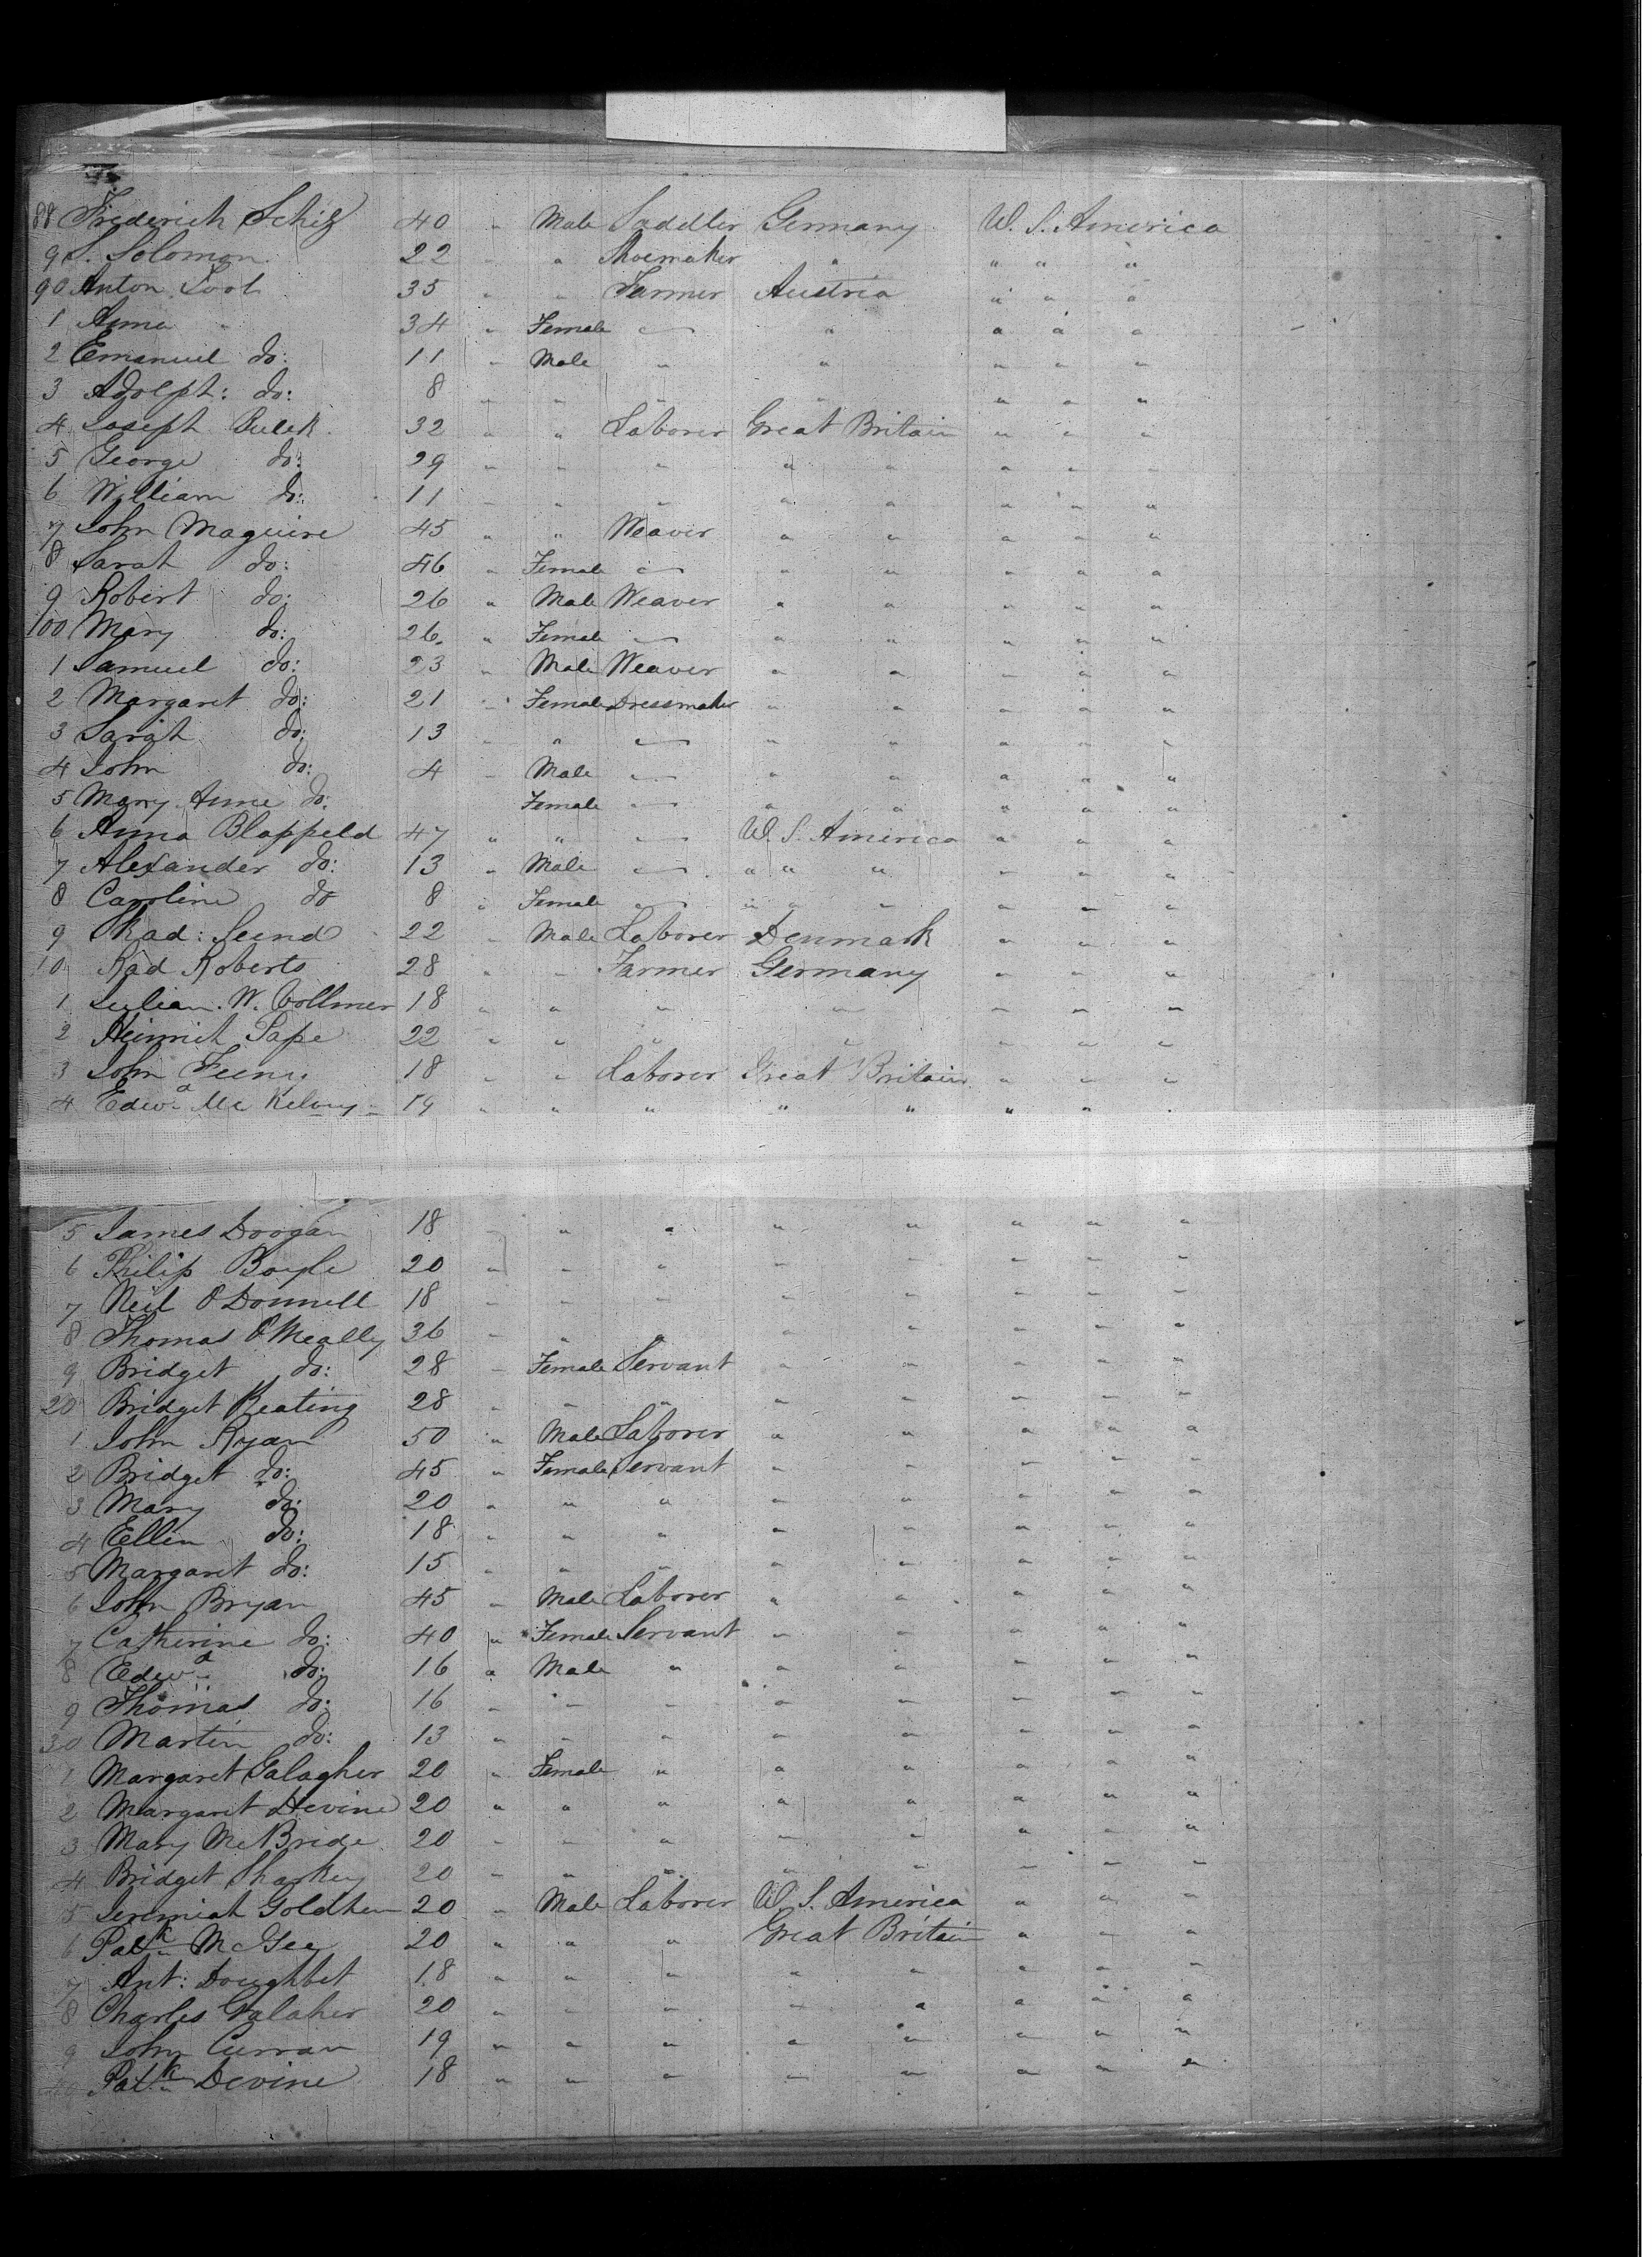 88 Frederich Schilz 40 " Male Saddler Germany U. S. America
9 S. Solomon 22 " " Shoemaker " " " "
90 Anton 35 " " Farmer Austria " " "
1 Anna " 34 " Female — " " " "
2 Emanuel do: 11 " Male " " " " "
3 Adolph: do: 8 " " " " " " "
4 Joseph 32 " " Laborer Great Britain " " "
5 George do: 29 " " " " " " " "
6 William do: 11 " " " " " " " "
7 John Maguire 45 " " Weaver " " " " "
8 Sarah do: 46 " Female — " " " " "
9 Robert do: 26 " Male Weaver " " " " "
100 Mary do: 26 " Female — " " " " "
1 Samuel do: 23 " Male Weaver " " " " "
2 Margaret do: 21 " Female Dressmaker " " " " "
3 Sarah do: 13 " " — " " " " "
4 John do: 4 " Male — " " " " "
5 Mary Anne do: Female — " " " " "
6 Anna Blappeld 47 " " — U. S. America " " "
7 Alexander do: 13 " Male — " " " " " "
8 Caroline do 8 " Female — " " " " " "
9 22 " Male Laborer Denmark " " "
10 Rad Roberts 28 " " Farmer Germany " " "
1 Julian. W. Vollmer 18 " " " " " " "
2 Heinrich Pape 22 " " " " " " "
3 John Feeny 18 " " Laborer Great Britain " " "
4 Edwd Mc Kelvey 19 " " " " " " " "
5 James Doogan 18 " " " " " " " "
6 Philip Boyle 20 " " " " " " " "
7 Neil O'Donnell 18 " " " " " " " "
8 Thomas O'Meally 36 " " " " " " " "
9 Bridget do: 28 " Female Servant " " " " "
20 Bridget Keating 28 " " " " " " " "
1 John Ryan 50 " Male Laborer " " " " "
2 Bridget do: 45 " Female Servant " " " " "
3 Mary do: 20 " " " " " " " "
4 Ellen do: 18 " " " " " " " "
5 Margaret do: 15 " " " " " " " "
6 John Bryan 45 " Male Laborer " " " " "
7 Catherine do: 40 " Female Servant " " " " "
8 Edwd do: 16 " Male " " " " " "
9 Thomas do: 16 " " " " " " " "
30 Martin do: 13 " " " " " " " "
1 Margaret Galagher 20 " Female " " " " " "
2 Margaret Devine 20 " " " " " " " "
3 Mary McBride 20 " " " " " " " "
4 Bridget Sharkey 20 " " " " " " " "
5 Jeremiah 20 " Male Laborer U. S. America " " "
6 Patk McGee 20 " " " Great Britain " " "
7 Ant: 18 " " " " " " " "
8 Charles Galaher 20 " " " " " " " "
9 John Curran 19 " " " " " " " "
40 Patk Devine 18 " " " " " " " "